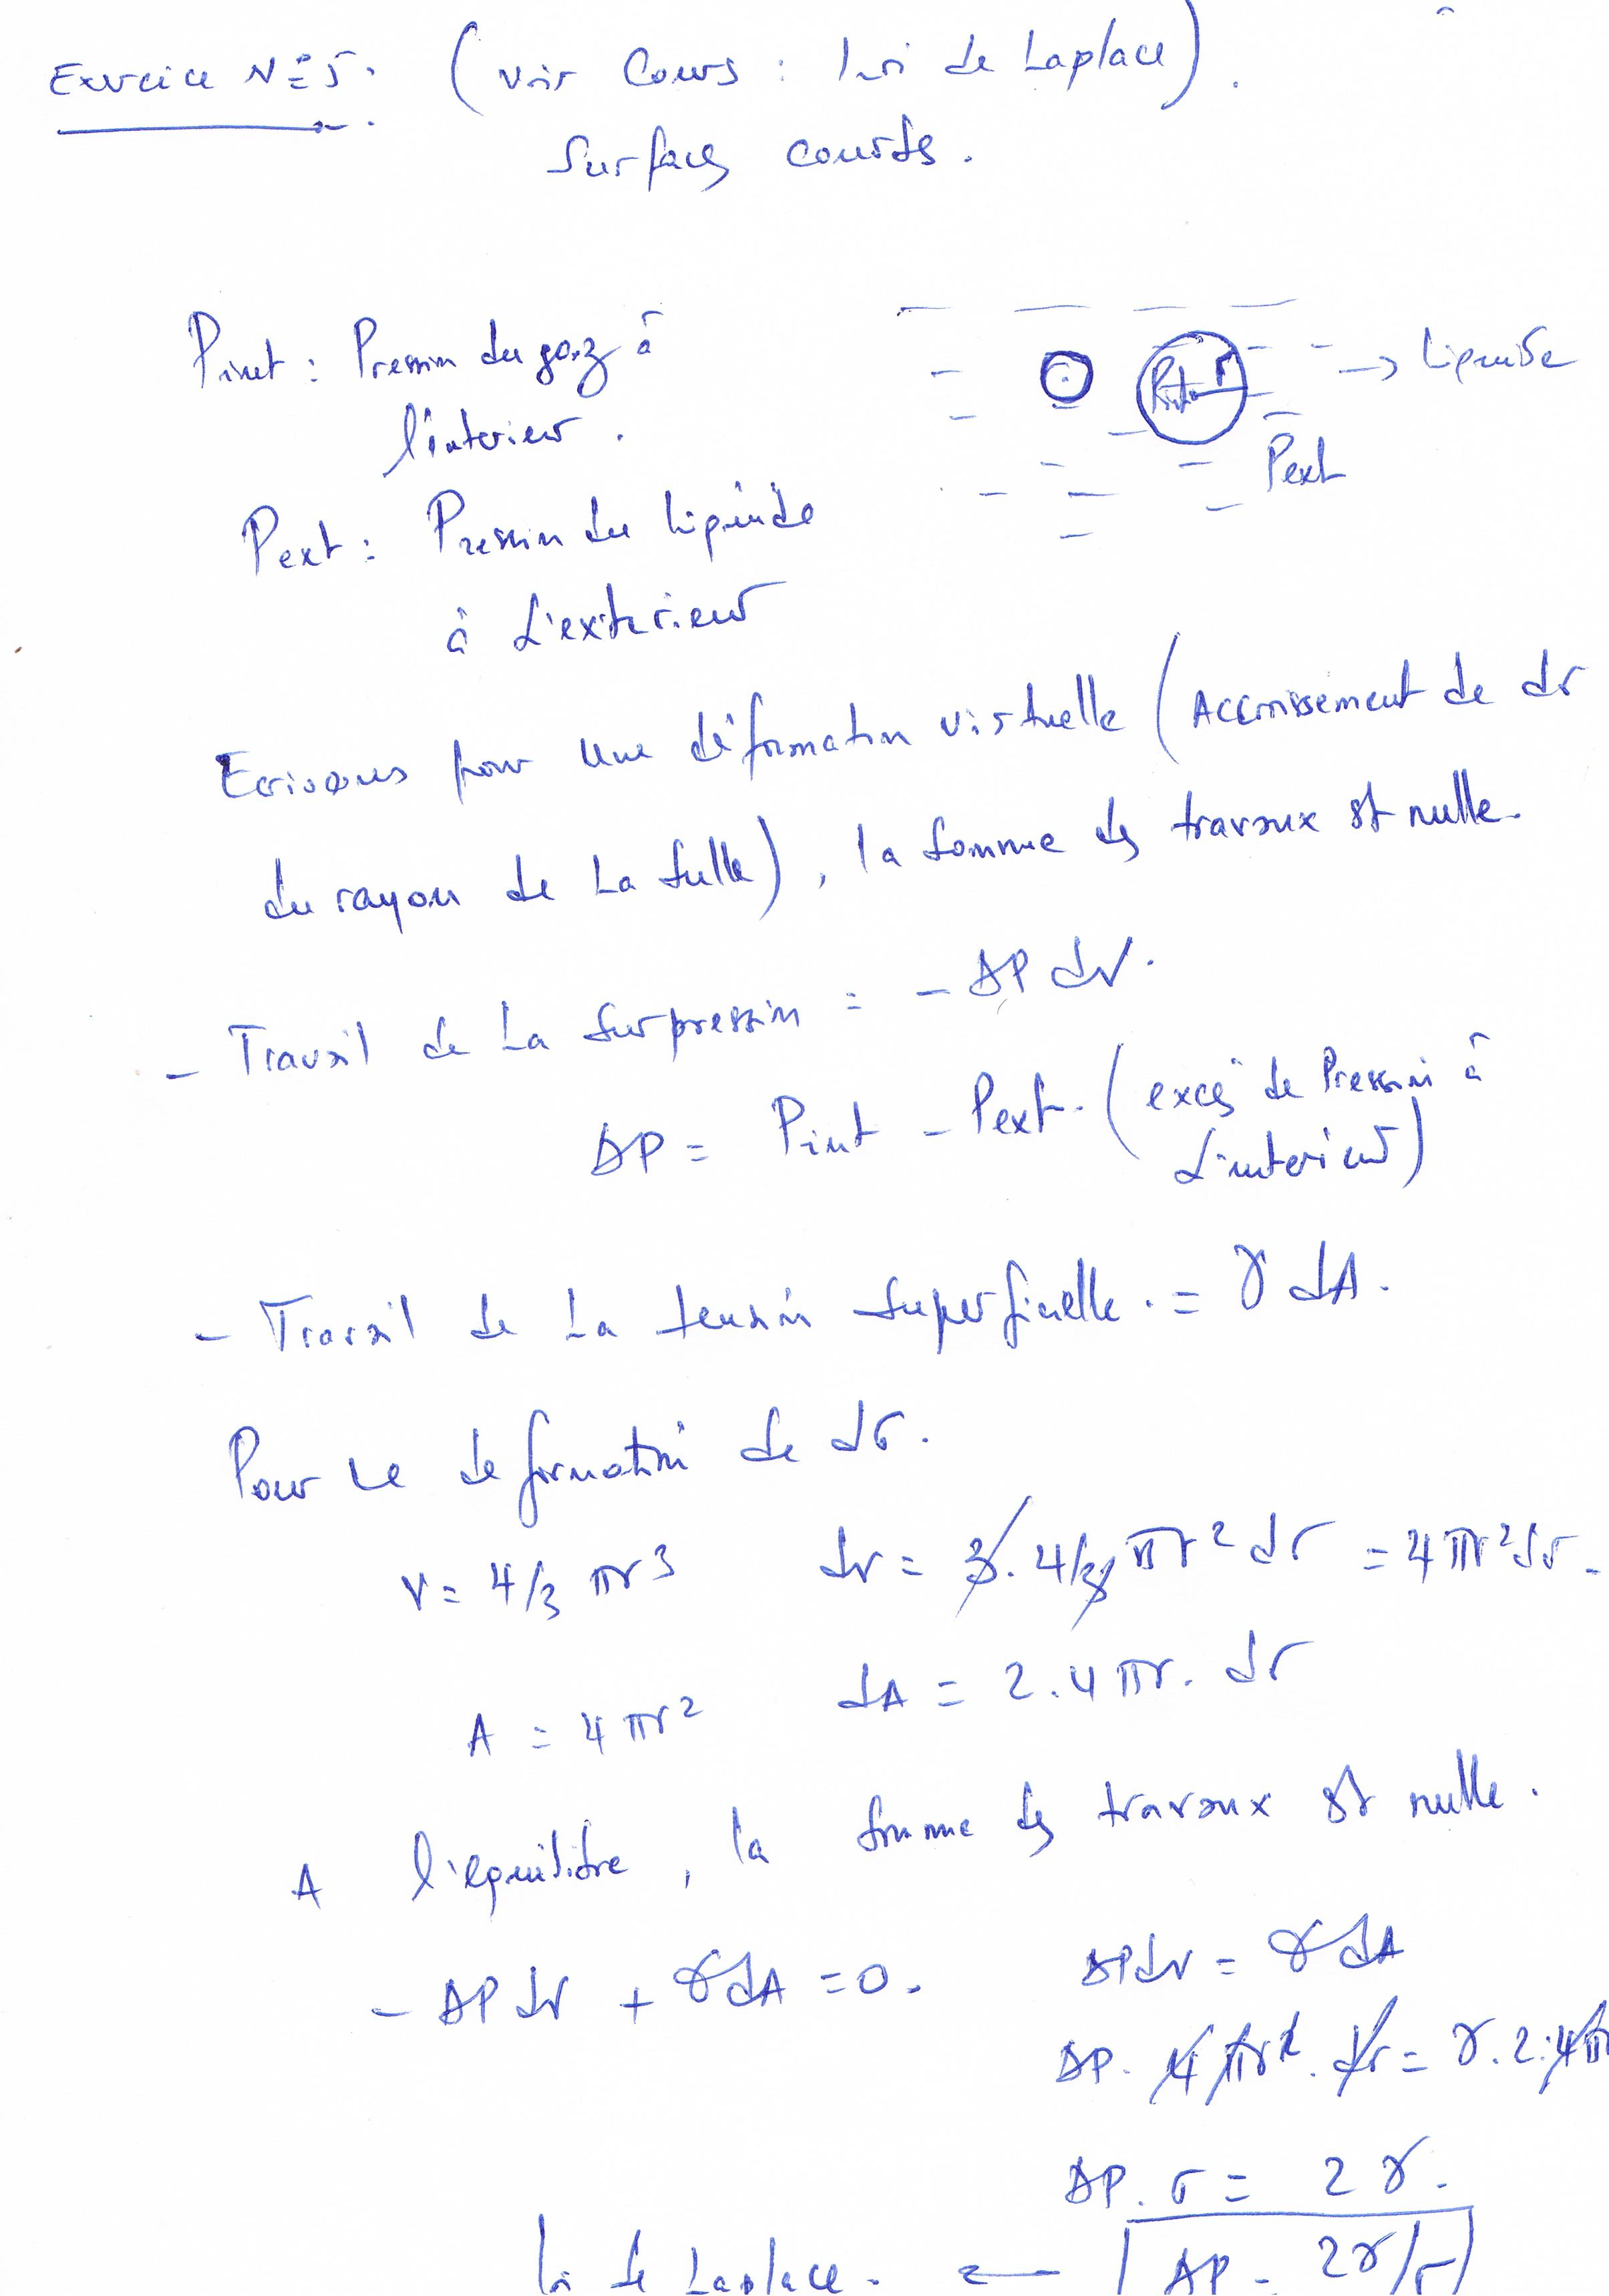 Exercice N°5. (voir Cours : loi de Laplace).
Surfaces courbes.
Pint : Pression du gaz à
l'interieur.
Pint r
→ Liquide
Pext
Pext : Pression du liquide
à L'exterieur
Ecrivons pour une déformation virtuelle (Accroissement de dr
du rayon de La bulle), la somme des travaux est nulle.
- Travail de La surpression = - ΔP dV.
ΔP = Pint - Pext. (excés de Pression à
L'interieur)
- Travail de La tension superficielle. = γ dA.
Pour le deformation de dr.
V = 4/3 πr³ dV = 3. 4/3 πr² dr = 4πr²dr.
A = 4πr² dA = 2.4πr. dr
A l'equilibre, la somme des travaux est nulle.
- ΔP dV + γdA = 0. ΔPdV = γdA
ΔP. 4πr². dr = γ.2.4π
ΔP. r = 2γ.
loi de Laplace. ← ΔP = 2γ/r